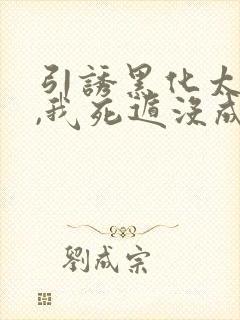 引誘黑化太
,我死遁沒成
劉成宗